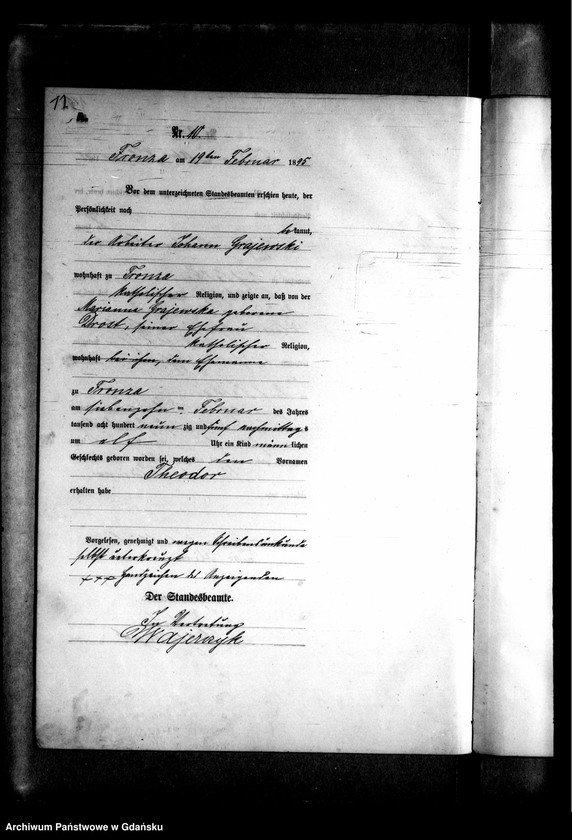 11.
A.
Nr. 10.
Fronza am 19ten Februar 1895
Vor dem unterzeichneten Standesbeamten erschien heute, der
Persönlichkeit nach
bekannt,
der Arbeiter Johann Grajewski
wohnhaft zu Fronza
katholischer Religion, und zeigte an, daß von der
Marianna Grajewska geborene
Drost, seiner Ehefrau
katholischer Religion,
wohnhaft bei ihm, dem Ehemanne
zu Fronza
am siebenzehn ten Februar des Jahres
tausend acht hundert neun zig und fünf vormittags
um elf Uhr ein Kind männlichen
Geschlechts geboren worden sei, welches den Vornamen
Theodor
erhalten habe
Vorgelesen, genehmigt und wegen Schreibensunkunde
selbst unterkreuzt
+++ Handzeichen des Anzeigenden
Der Standesbeamte.
In Vertretung
Majerzyk
Archiwum Państwowe w Gdańsku